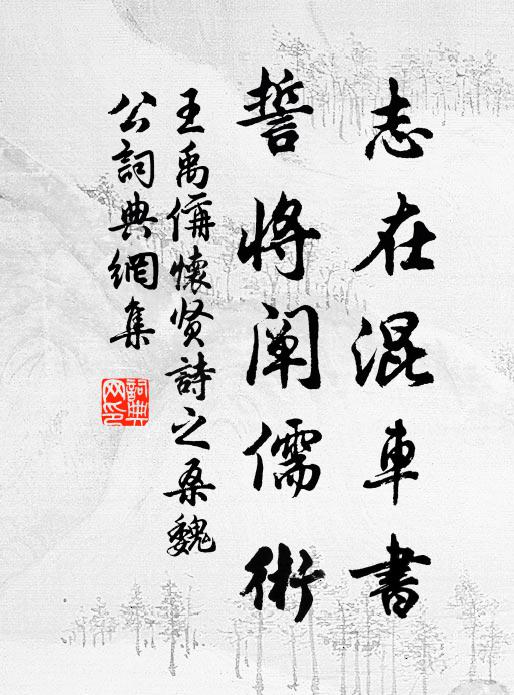 志在混車書
誓將闡儒術
王禹偁懷贤詩之桑魏
公詞典網集
詞典網印